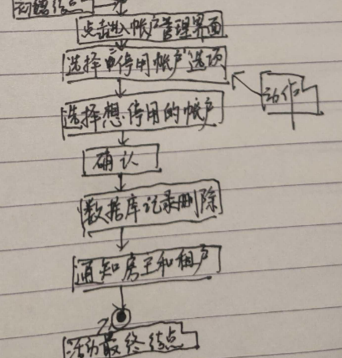 点击进入帐户管理界面
选择"停用帐户"选项
动作
选择想停用的帐户
确认
数据库记录删除
通知房主和租户
活动最终结点